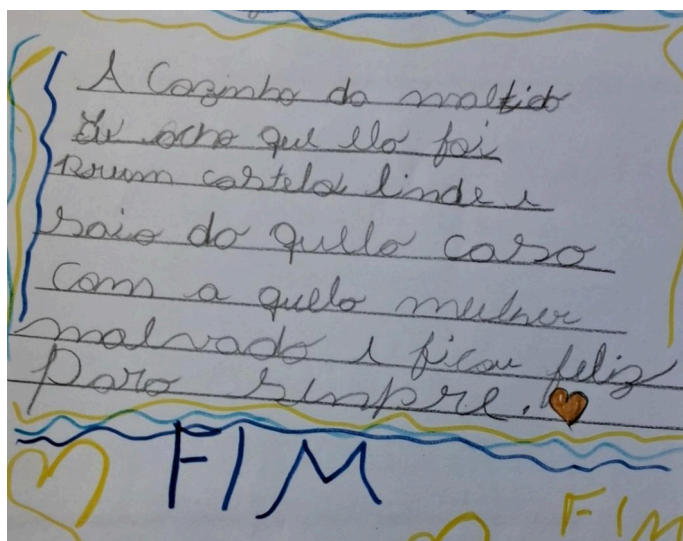 A Cozinha da maltido
Eu acho que ela foi
prum castelo linde e
saio da quela casa
com a quela mulher
malvada e ficou feliz
para sinpre.
FIM
FIM